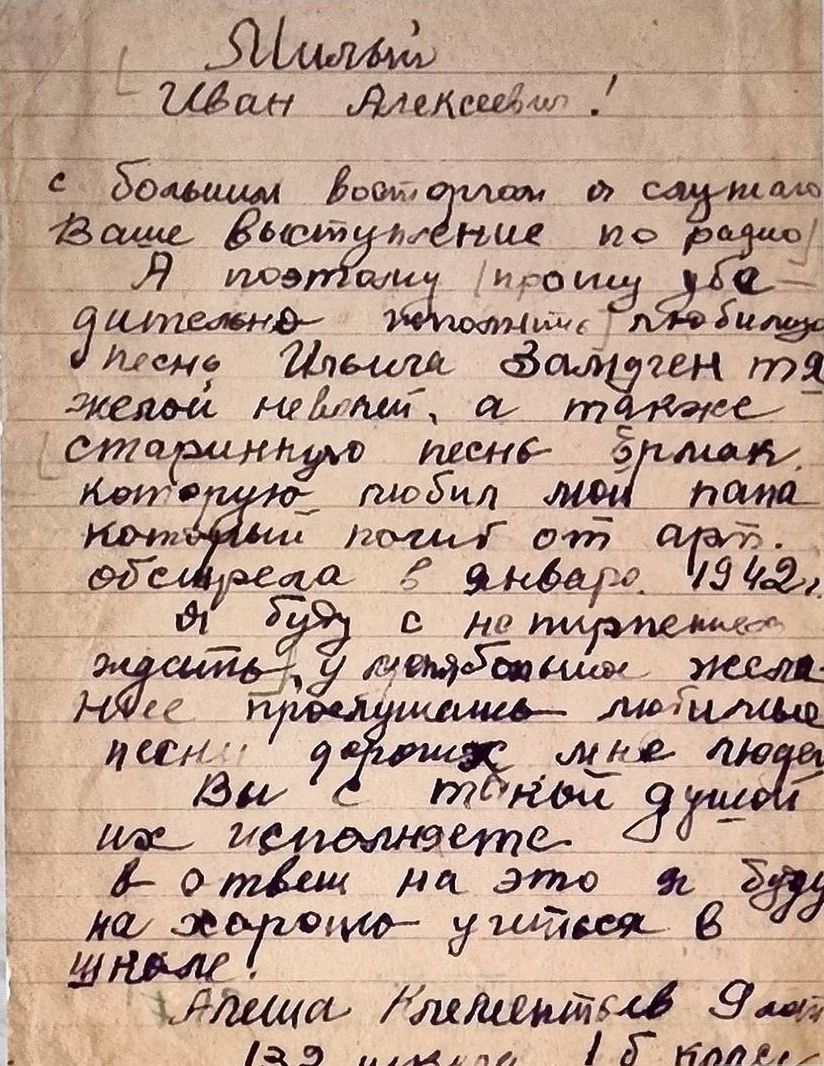 Милый
Иван Алексеевич!
с большим восторгом я слушаю
Ваше выступление по радио
А поэтому прошу убе-
дительно исполнить любимую
песнь Ильича Замучен тя
желой неволей, а также
старинную песнь Ермак
которую любил мой папа
который погиб от арт.
обстрела в январе 1942г.
Я буду с нетирпением
ждать, у меня большое жела-
ние прослушать любимые
песни дорогих мне людей
Вы с такой душой
их исполняете
в ответ на это я буду
на хорошо учиться в
школе.
Алеша Клементьев 9 лет
139 школа 1 б класс